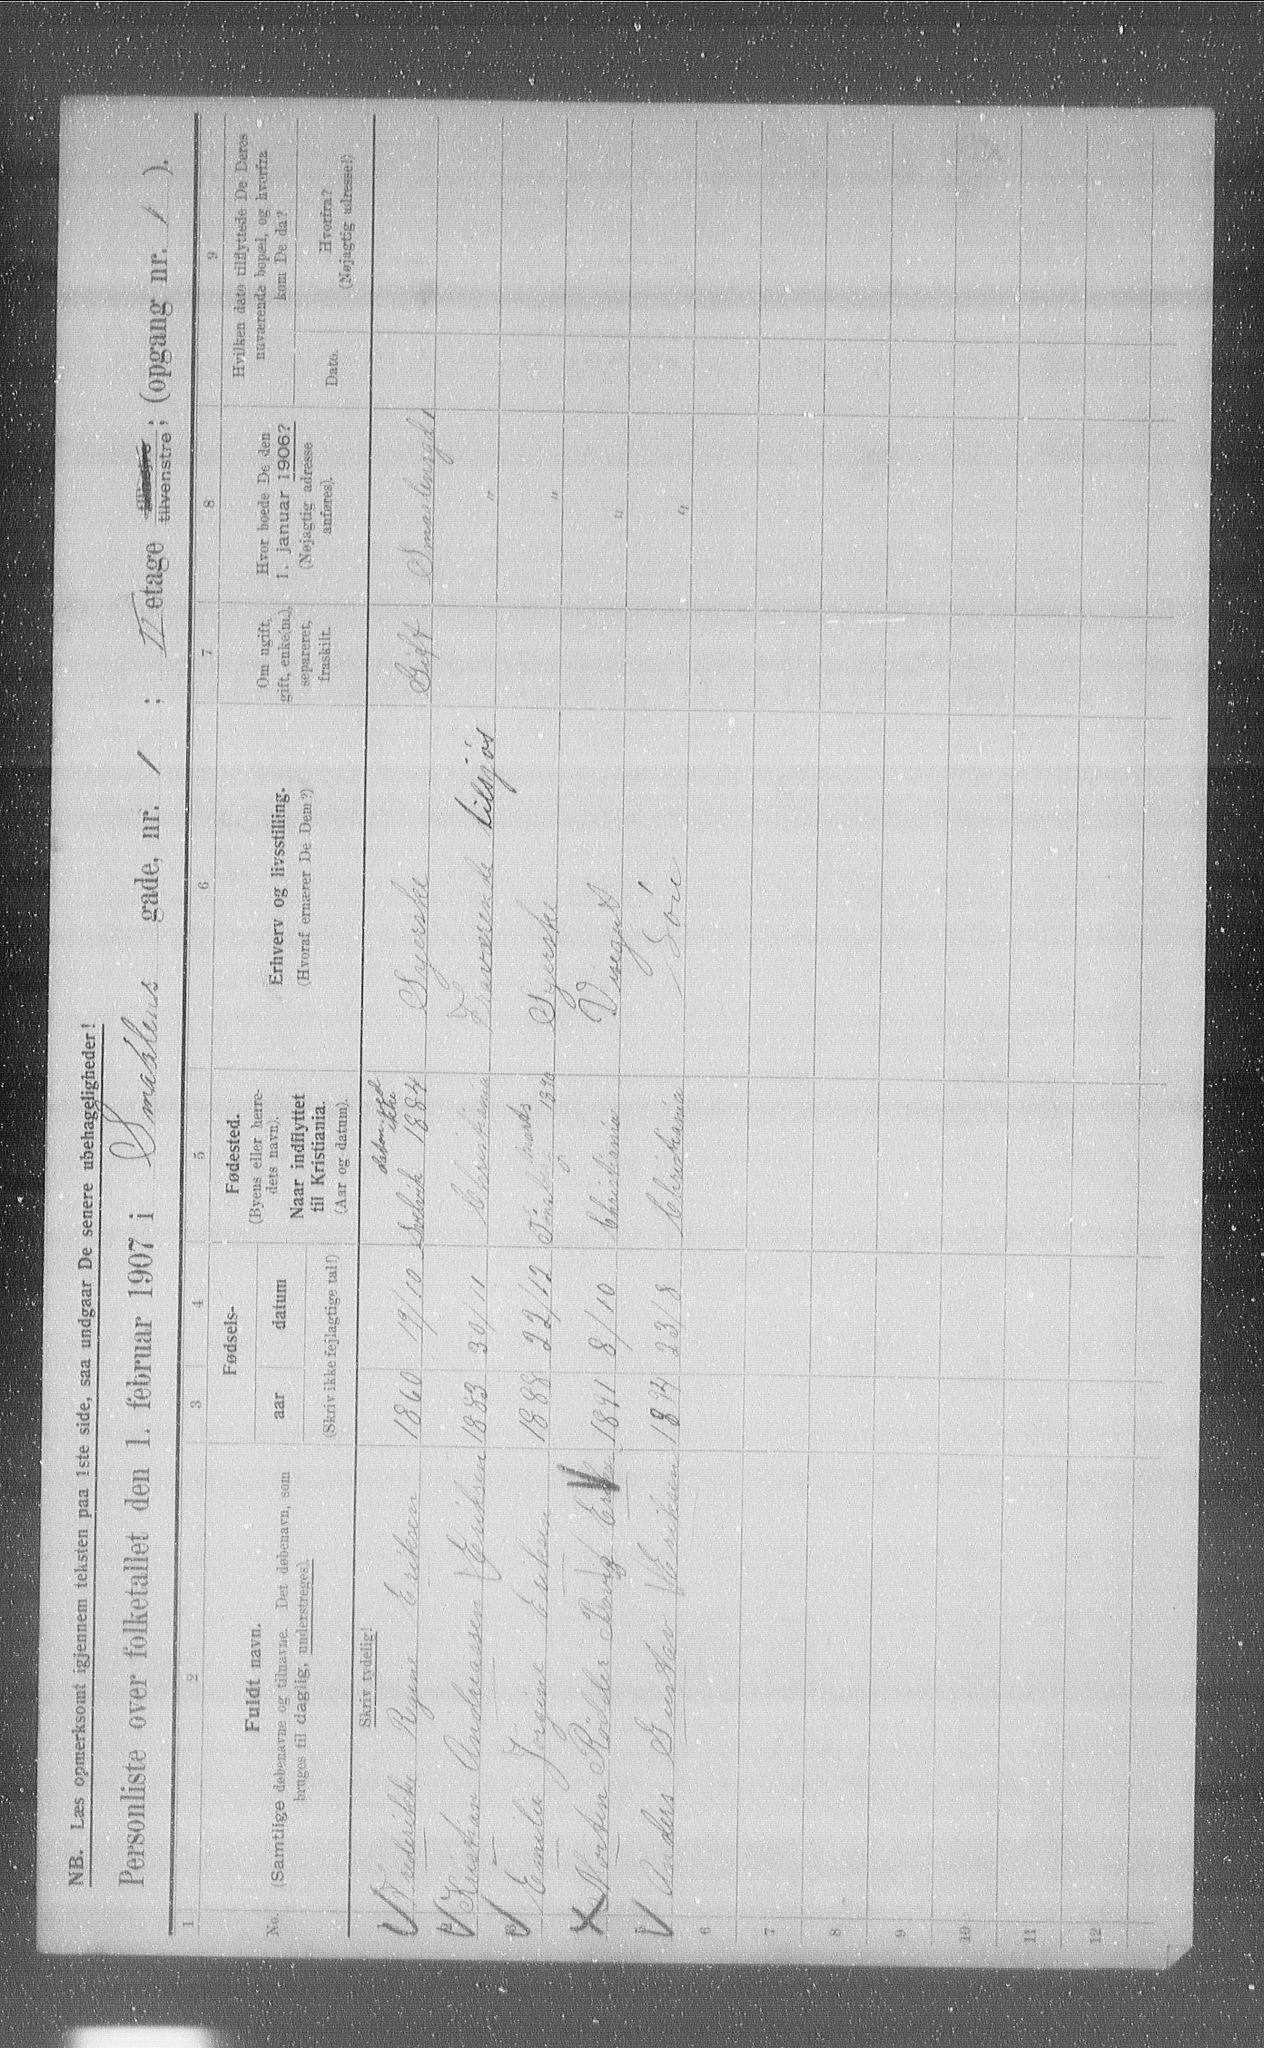 NB. Læs opmerksomt igjennem teksten paa 1ste side, saa undgaar De senere ubehageligheder!
Personliste over folketallet den 1. februar 1907 i Smaalens gade, nr. 1 ; II etage tilvenstre ; (opgang nr. 1 ).
1 2 3 4 5 6 7 8 9
No.
Fuldt navn.
(Samtlige døbenavne og tilnavne. Det døbenavn, som
bruges til daglig, understreges).
Fødsels-
aar datum
(Skriv ikke fejlagtige tal!)
Fødested.
(Byens eller herre-
dets navn).
Naar indflyttet
til Kristiania.
(Aar og datum).
Erhverv og livsstilling.
(Hvoraf ernærer De Dem?)
Om ugift,
gift, enke(m.),
separeret,
fraskilt.
Hvor boede De den
1. januar 1906?
(Nøjagtig adresse
anføres).
Hvilken dato tilflyttede De Deres
nuværende bopæl, og hvorfra
kom De da?
Dato.
Hvorfra?
(Nøjagtig adresse!)
Skriv tydelig!
1 Frederikke Regine Eriksen 1860 19/10 Svelvik 1884 Syerske Gift Smaalensgd 1
ikke
2 Kristian Andreassen Eriksen 1883 30/11 Christiania Fraværende tilsjøs "
3 Emilie Jørgine Eriksen 1888 22/12 1890 Syerske "
4 Morten 1891 8/10 Christiania Visegut "
5 Anders Gustav Eriksen 1894 23/8 Christiania "
6
7
8
9
10
11
12